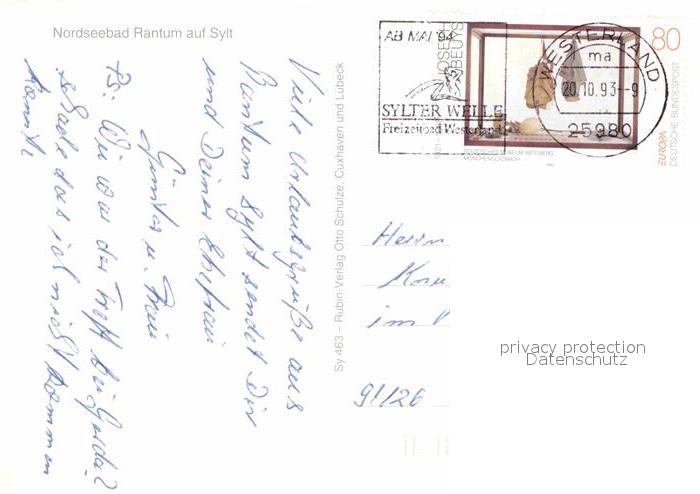 Nordseebad Rantum auf Sylt
Viele Urlaubsgrüße aus
Rantum Sylt sendet Dir
und Deiner Ehefrau
Günter u. Frau
Ps: Wie war der Treff bei Gerda?
schade das ich nicht kommen
konnte
Sy 463 – Rubin-Verlag Otto Schulze, Cuxhaven und Lübeck
AB MAI '94
SYLTER WELLE
Freizeitbad Westerland
JOSEPH
BEUYS
80
WESTERLAND
ma
20.10.93--9
25980
EUROPA
DEUTSCHE BUNDESPOST
MÖNCHENGLADBACH
Herrn
im
91126
privacy protection
Datenschutz